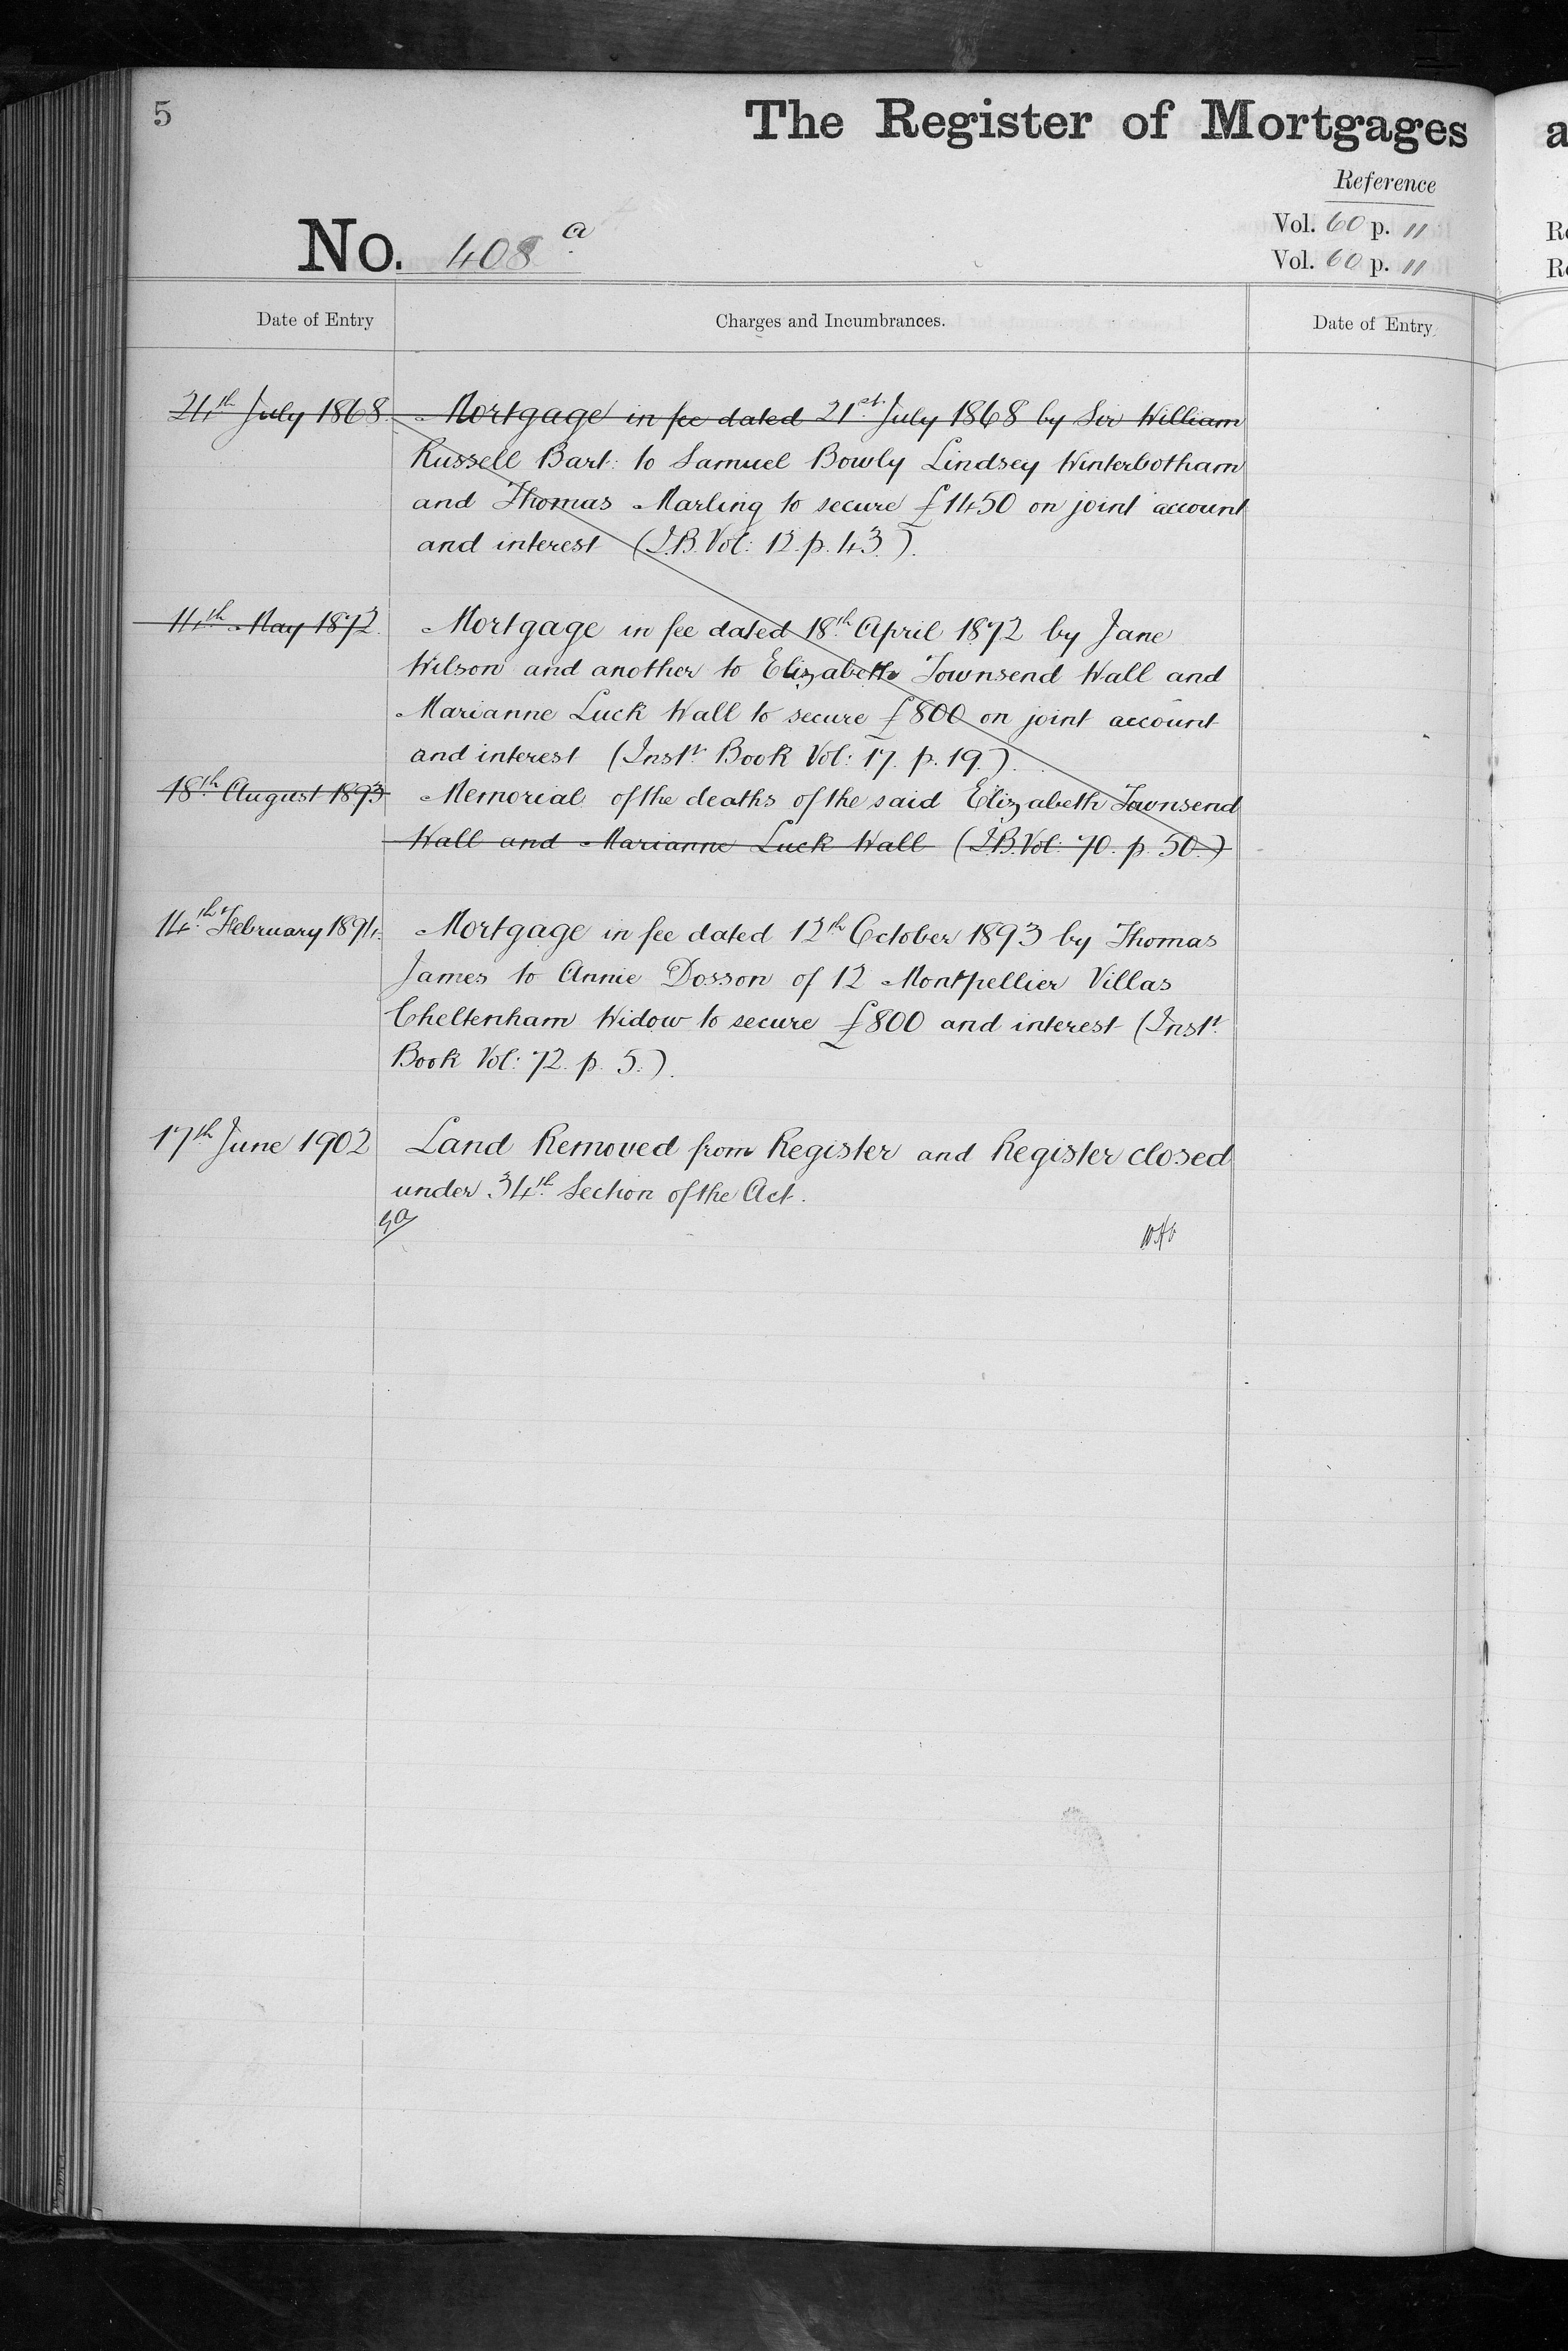 5
The Register of Mortgages
Reference
Vol. 60 p. 11
Vol. 60 p. 11
No. 408 a
Date of Entry Charges and Incumbrances. Date of Entry
24th July 1868 Mortgage in fee dated 21st July 1868 by Sir William
Russell Bart: to Samuel Bowly Lindsey Winterbotham
and Thomas Marling to secure £1450 on joint account
and interest (I.B. Vol: 12. p. 43.).
14th May 1872. Mortgage in fee dated 18th April 1872 by Jane
Wilson and another to Elizabeth Townsend Wall and
Marianne Luck Wall to secure £800 on joint account
and interest (Instt Book Vol: 17. p. 19.).
18th August 1893 Memorial of the deaths of the said Elizabeth Townsend
Wall and Marianne Luck Wall (I.B. Vol: 70. p. 50.)
14th February 1894. Mortgage in fee dated 12th October 1893 by Thomas
James to Annie Dosson of 12 Montpellier Villas
Cheltenham Widow to secure £800 and interest (Instt
Book Vol: 72. p. 5.).
17th June 1902 Land Removed from Register and Register closed
under 34th Section of the Act.
a
Re
Re